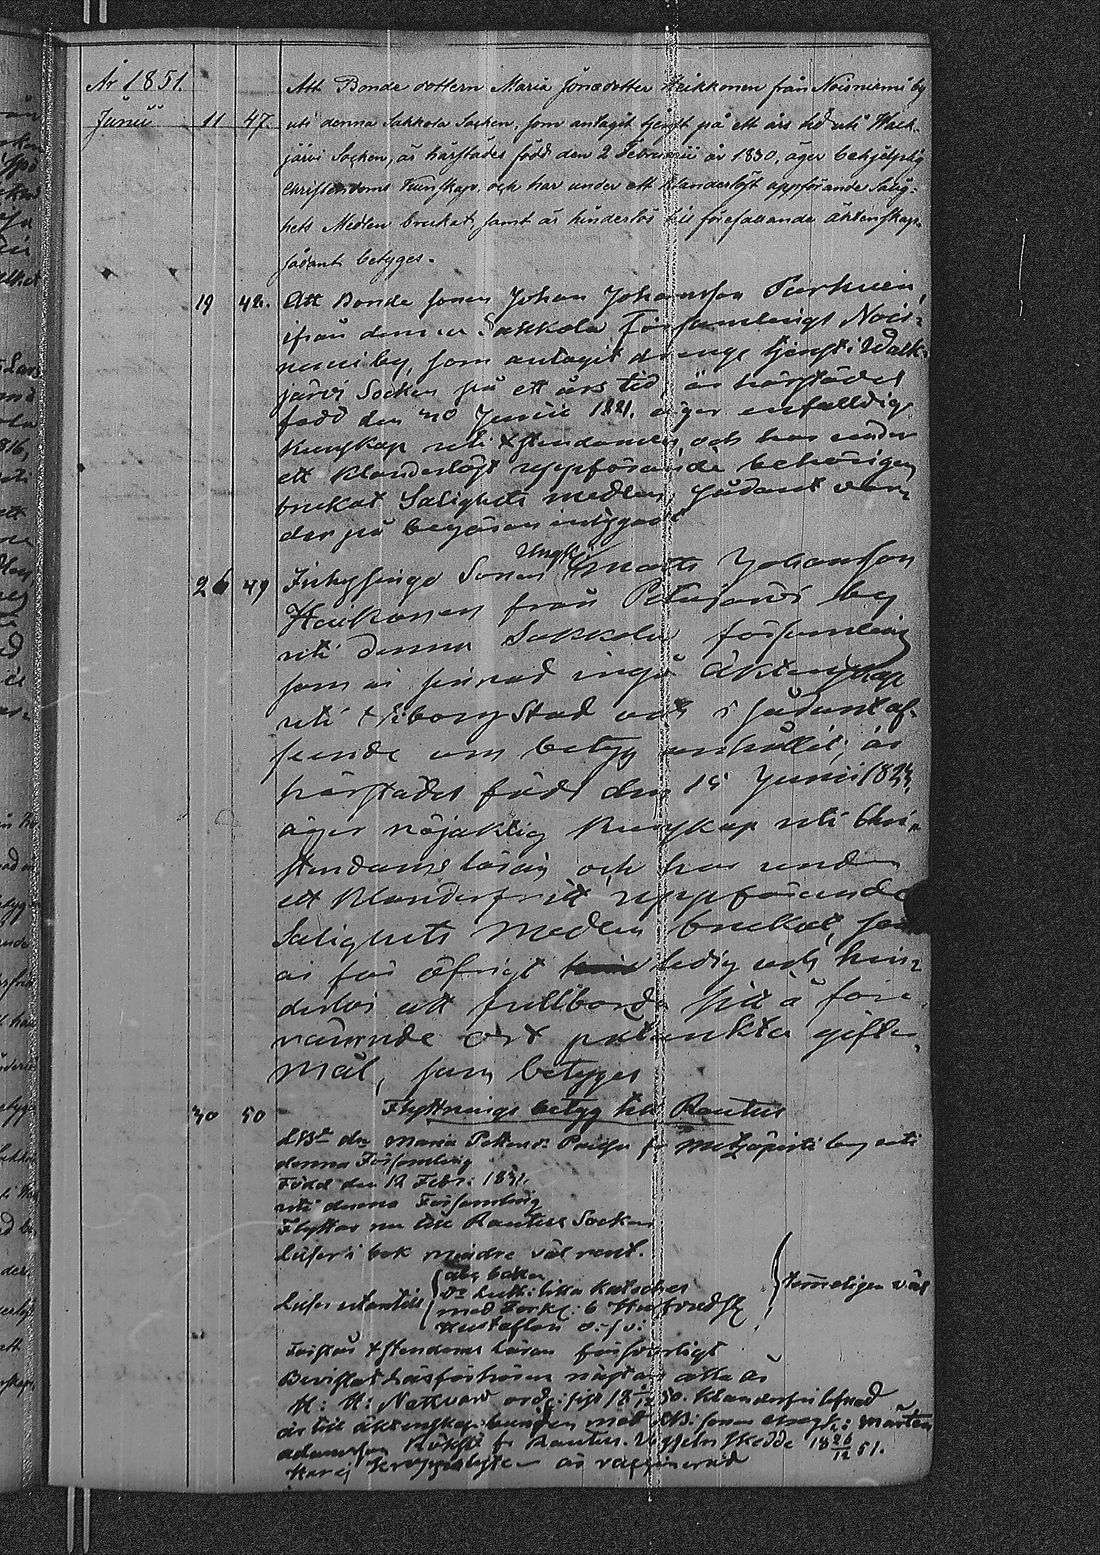 År 1851.
Junii 11 47. Att Bonde dottern Maria Jönsdotter Heikkonen från Noisniemi by
uti denna Sakkola Socken, som antagit tjenst på ett års tid uti Walk-
järvi Socken, är härstädes född den 2 Februarii år 1830, äger behjelplig
Christendoms Kunskap, och har under ett klanderlöst uppförande Salig-
hets Medlen brukat samt är hinderlös till förefallande äktenskap,
sådant betyges.
19 48. Att Bonde sonen Johan Johansson
ifrån denna Sakkola Församlings Nois-
niemi by, som antagit drengetjenst i Walk-
järvi Socken på ett års tid är härstädes
född den Junii 1821. äger enfaldig
Kunskap uti Xstendomen och har under
ett klanderlöst uppförande behörigen
brukat Salighets medlen, sådant var-
der på begäran intygadt
26 49 Inhysinge Sonen Ungk: Matts Johansson
Haikonen från Petäjärvi by
uti denna Sakkola församling
som är sinnad ingå äktenskap
uti Wiborg Stad och i sådant af-
seende om betyg anhållit, är
härstädes född den 15 Junii 1824,
äger nöjaktig Kunskap uti Chri-
stendoms läran och har under
ett Klanderfritt uppförande
Salighets Medlen brukat,
är för öfrigt ledig och hin-
derlös att fullborda sitt å före-
nämnde ort påtänkta gifte-
mål, som betyges
30 50 Flyttnings betyg till Rautus
Maria fr by uti
denna Församling
Född den 12 Febr: 1831.
uti denna Församling
Flyttar nu till Rautus Socken
Läser i bok mindre väl rent.
abc boken
Luth: lilla Kateches
Läser utantill med Förkl: o Husf
Hustaflan o: s: v:
temmeligen väl
Förstår Xstendoms läran försvarligt
Bevistat Läsförhören nästan alla år
H: H: Nattvard sist 50. Klanderfri lefnad
är till äktenskap bunden med sonen Mårten
fr Rautus. Vigseln skedde 18 26/12 51.
är vaccinerad